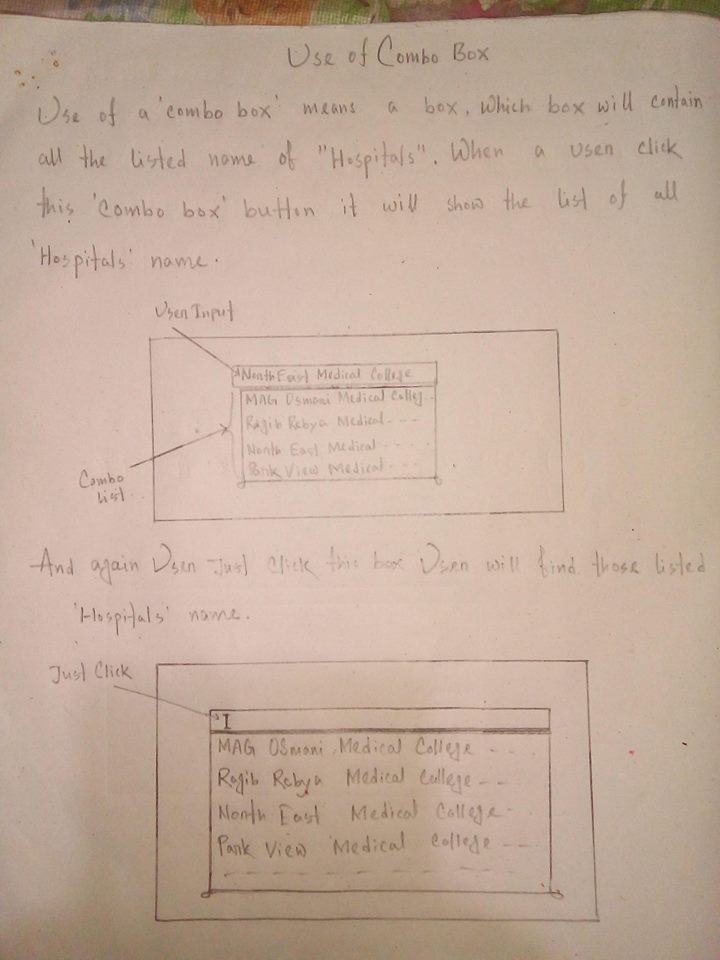 Use of Combo Box
Use of a 'combo box' means a box, which box will contain
all the listed name of "Hospitals". When a user click
this 'combo box' button it will show the list of all
'Hospitals' name.
User Input
North East Medical College
MAG Osmani Medical Colleg..
Ragib Rabya Medical - - -
North East Medical - - -
Park View Medical - - -
Combo
List
And again User Just Click this box User will find those listed
'Hospitals' name.
Just Click
I
MAG OSmani Medical College - - -
Ragib Rabya Medical College - -
North East Medical College -
Park View Medical College - - -